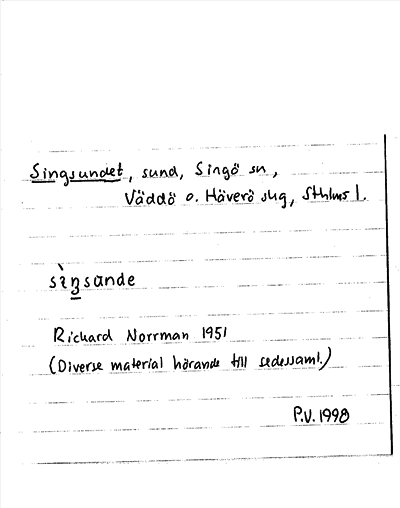 Singsundet, sund, Singö sn,
Väddö o. Häverö slg, Sthlms l.
sìŋsūnde
Richard Norrman 1951
(Diverse material hörande till sedessaml.)
P.V. 1998